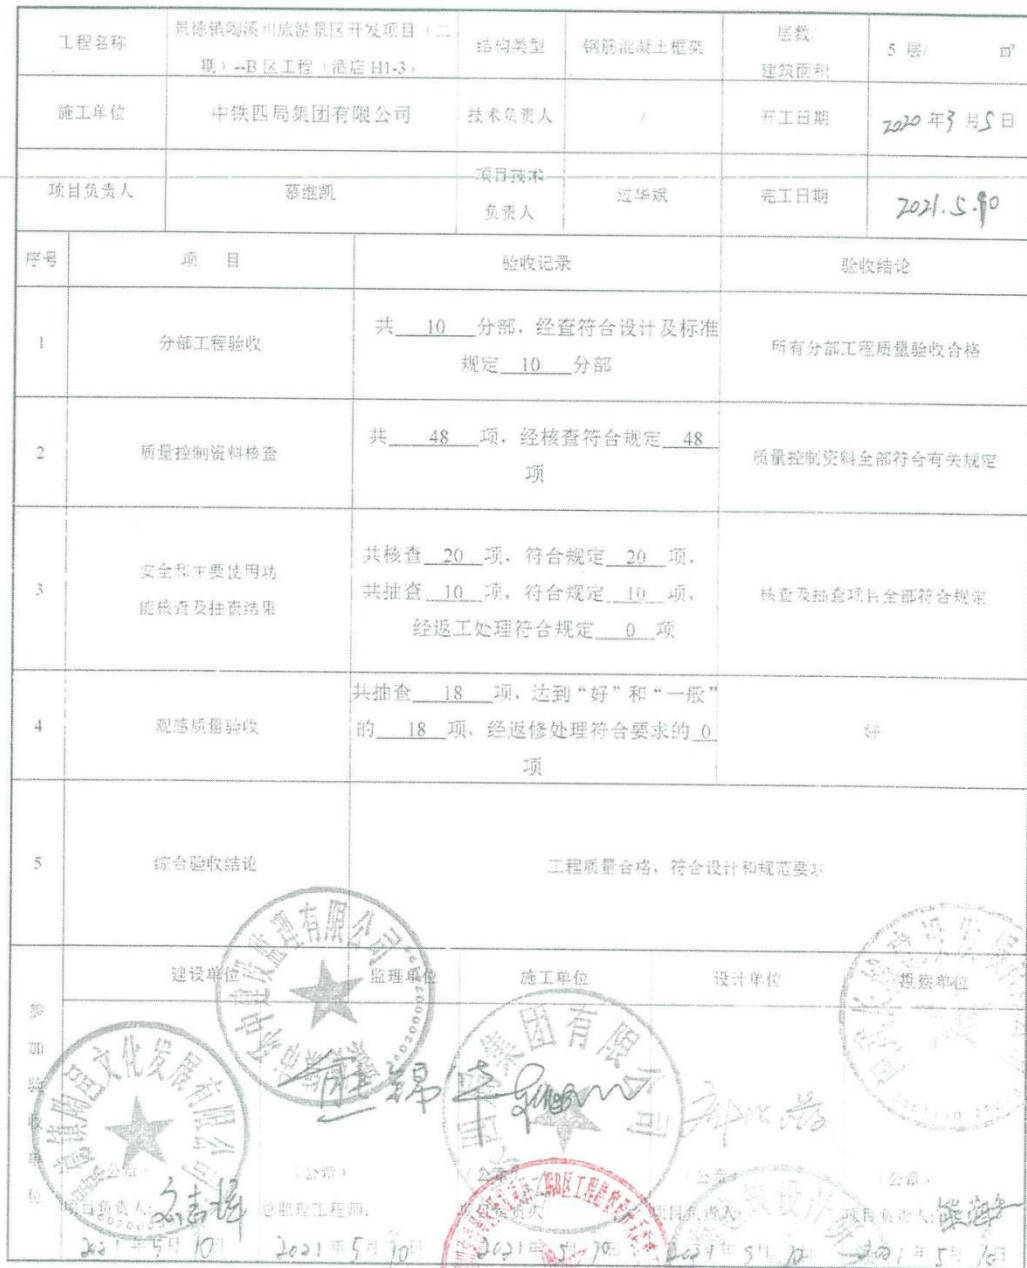 工程名称 景德镇陶溪川旅游景区开发项目（二期）--B区工程（酒店 H1-3） 结构类型 钢筋混凝土框架 层数/建筑面积 5 层/ m²
施工单位 中铁四局集团有限公司 技术负责人 / 开工日期 2020年3月5日
项目负责人 慕继凯 项目技术负责人 过华斌 完工日期 2021.5.10
序号 项 目 验收记录 验收结论
1 分部工程验收 共 10 分部，经查符合设计及标准
规定 10 分部 所有分部工程质量验收合格
2 质量控制资料核查 共 48 项，经核查符合规定 48
项 质量控制资料全部符合有关规定
3 安全和主要使用功
能核查及抽查结果 共核查 20 项，符合规定 20 项，
共抽查 10 项，符合规定 10 项，
经返工处理符合规定 0 项 核查及抽查项目全部符合规定
4 观感质量验收 共抽查 18 项，达到“好”和“一般”
的 18 项，经返修处理符合要求的 0
项 好
5 综合验收结论 工程质量合格，符合设计和规范要求
参加验收单位
建设单位 监理单位 施工单位 设计单位 勘察单位
熊锦华
（公章） （公章） （公章） （公章） （公章）
项目负责人： 总监理工程师： 项目负责人 项目负责人： 项目负责人：
2021年5月10日 2021年5月10日 2021年5月10日 2021年5月10日 2021年5月10日